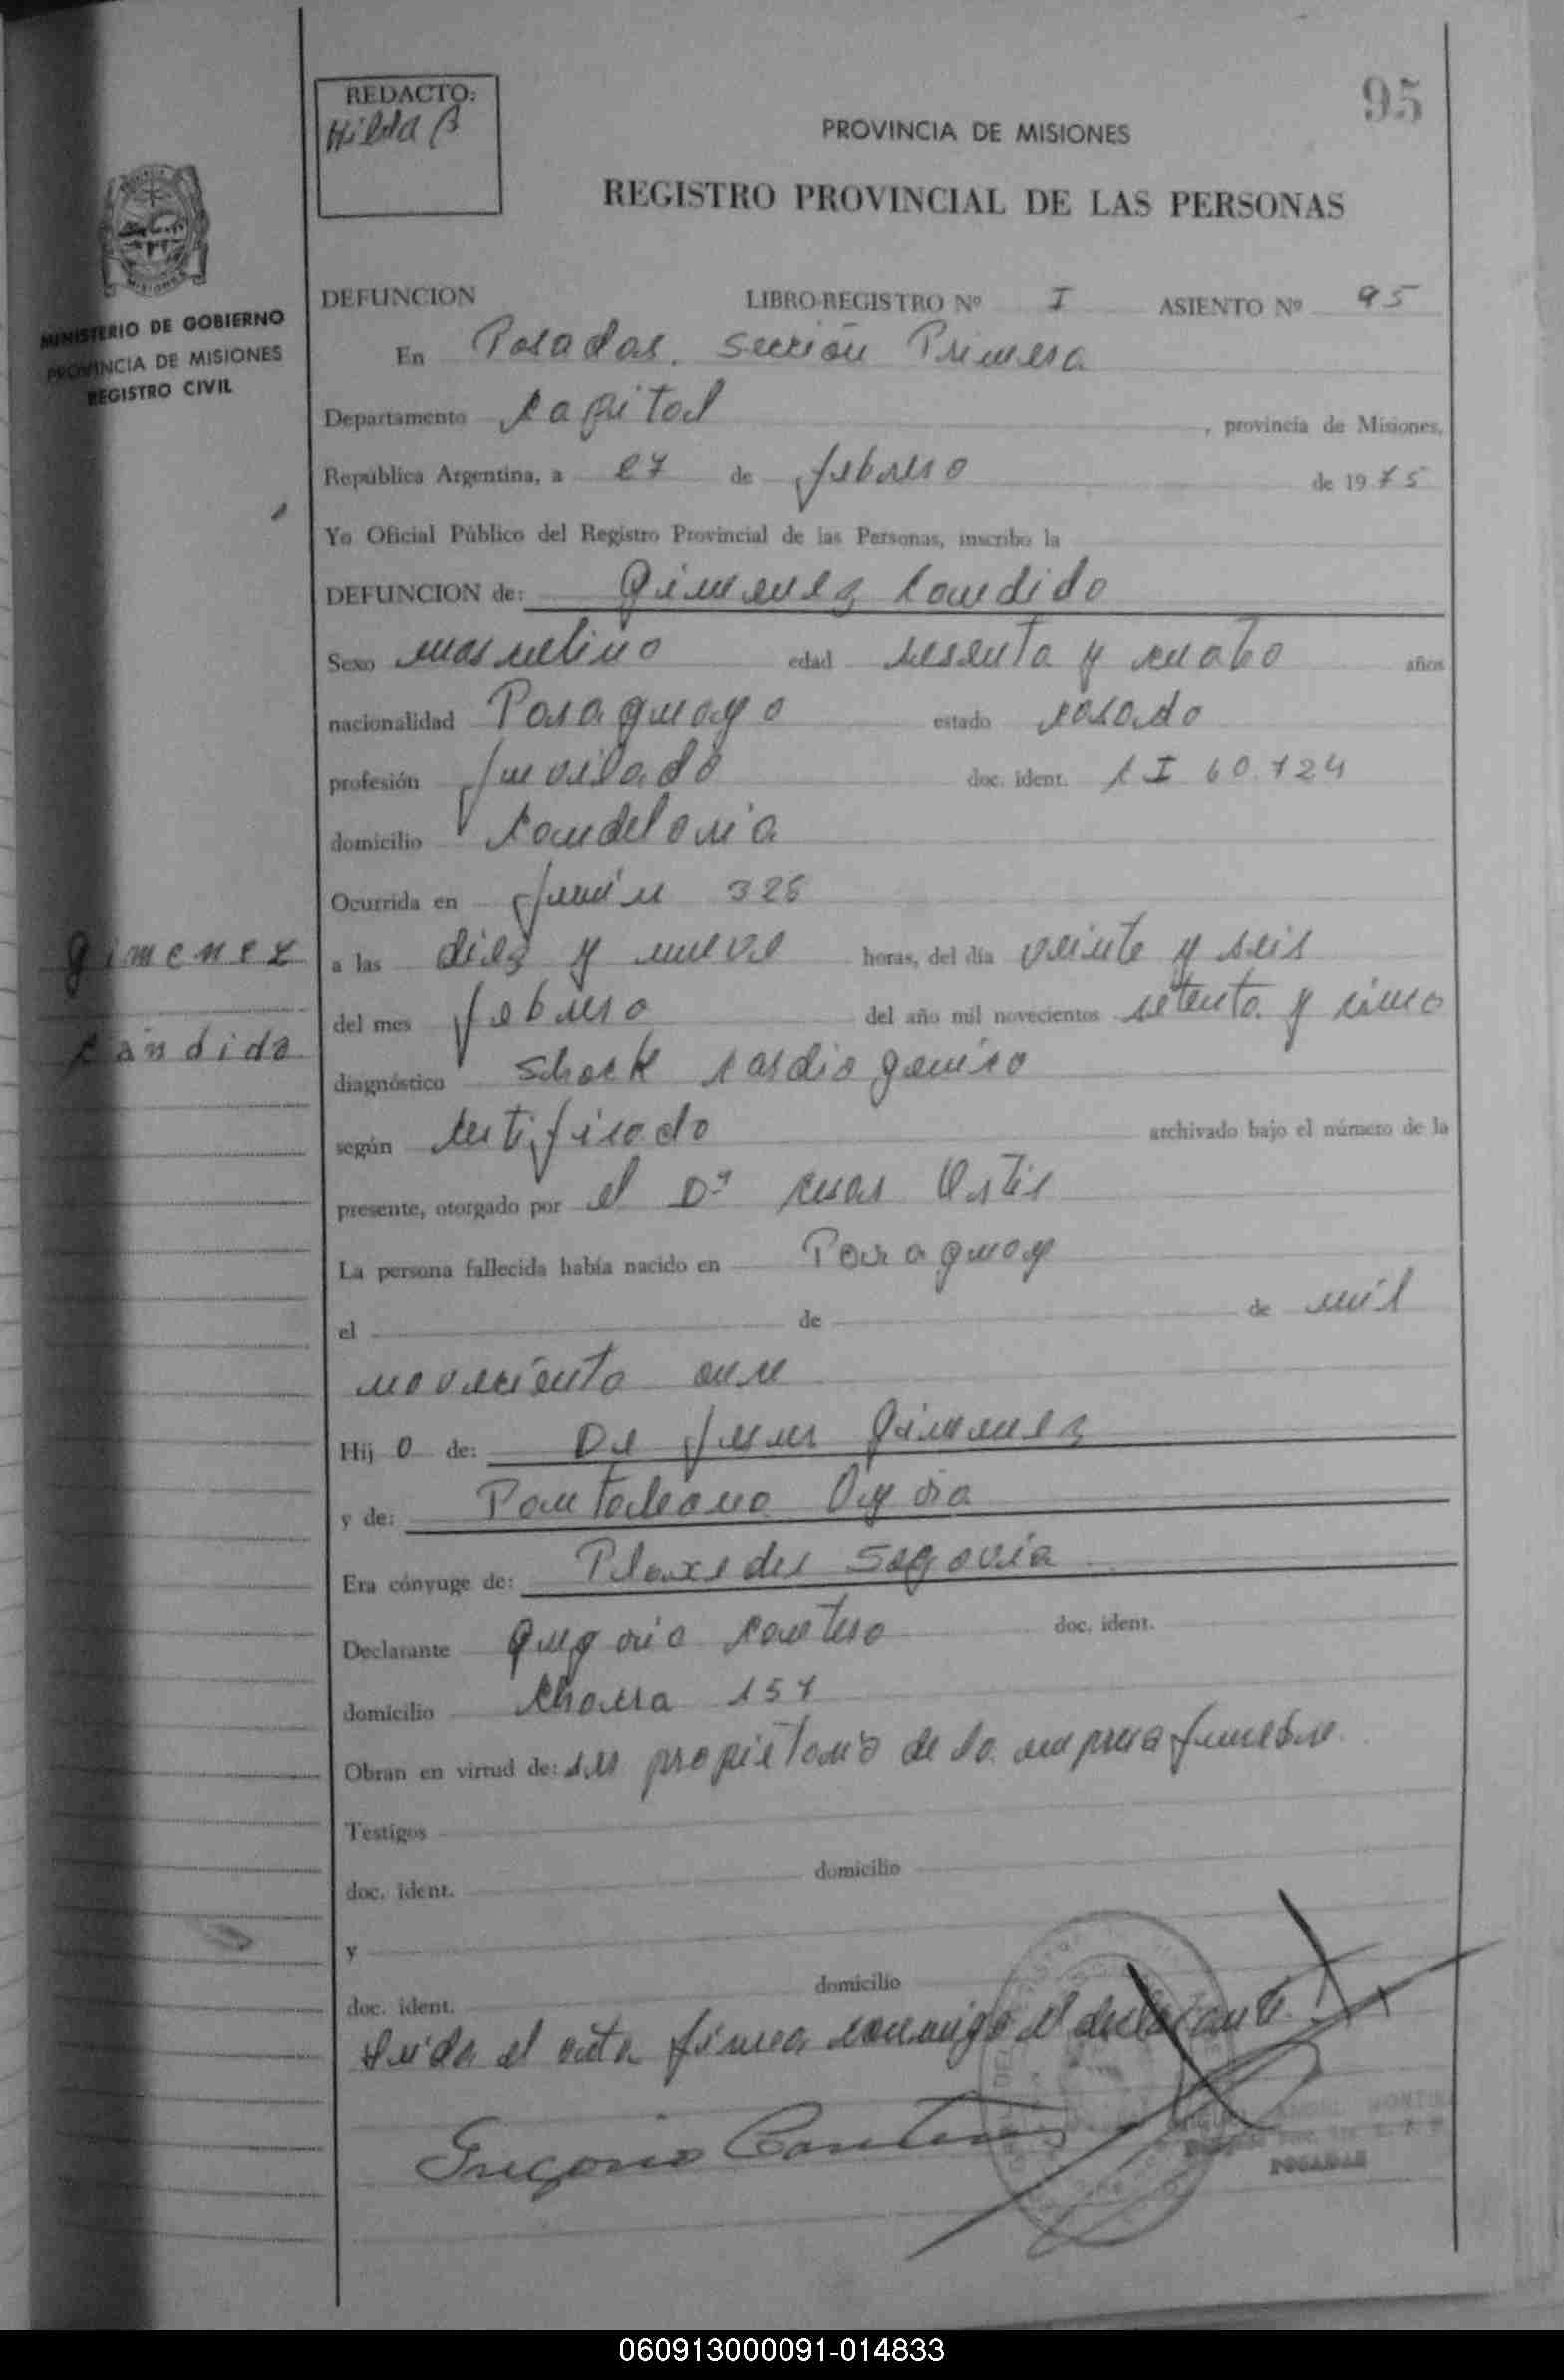 95
REDACTO:
Hilda B
PROVINCIA DE MISIONES
REGISTRO PROVINCIAL DE LAS PERSONAS
MINISTERIO DE GOBIERNO
PROVINCIA DE MISIONES
REGISTRO CIVIL
DEFUNCION LIBRO-REGISTRO Nº I ASIENTO Nº 95
En Posadas. Sección Primera
Departamento Capital , provincia de Misiones,
República Argentina, a 27 de febrero de 1975
Yo Oficial Público del Registro Provincial de las Personas, inscribo la
DEFUNCION de: Gimenez Candido
Sexo masculino edad sesenta y cuatro años
nacionalidad Paraguayo estado casado
profesión Juvilado doc. ident. CI 60.724
domicilio Candelaria
Ocurrida en Junín 328
Gimenez
Cándido
a las diez y nueve horas, del día veinte y seis
del mes febrero del año mil novecientos setenta y cinco
diagnóstico Schock cardiogenico
según certificado archivado bajo el número de la
presente, otorgado por el Dr
La persona fallecida había nacido en Paraguay
el de de mil
noveciento once
Hijo de: De Jesus Gimenez
y de: Pantaleona
Era cónyuge de: Segovia
Declarante Gregorio Cantero doc. ident.
domicilio 157
Obran en virtud de: ser propietario de la empresa funebre.
Testigos
doc. ident. domicilio
y
doc. ident. domicilio
Leida el acta firma conmigo el declarante.
Gregorio Cantero
POSADAS
060913000091-014833